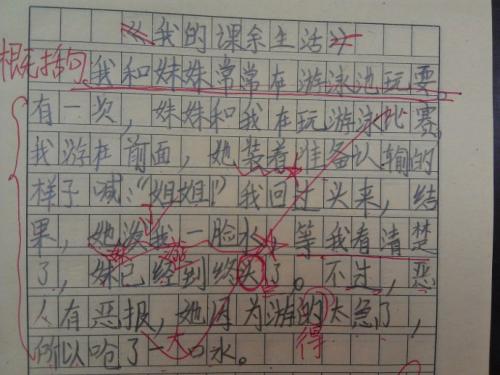 《我的课余生活》
概括句
我和妹妹常常在游泳池玩耍。
有一次,妹妹和我在玩游泳比赛,
我游在前面,她装着准备认输的
样子喊:“姐姐!”我回过头来,结
果,她泼我一脸水。等我看清楚
了,妹已经到终头了。不过,恶
人有恶报,她因为游的太急了,
得
所以呛了一大口水。